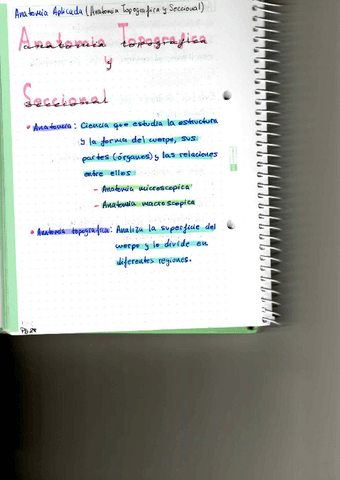 Anatomía Aplicada (Anatomía Topografica y Seccional)
Anatomia Topografica
y
Seccional
• Anatomía: Ciencia que estudia la estructura
y la forma del cuerpo, sus
partes (órganos) y las relaciones
entre ellos
- Anatomía microscopica
- Anatomía macroscopica
• Anatomía topografica: Analiza la superficie del
cuerpo y lo divide en
diferentes regiones.